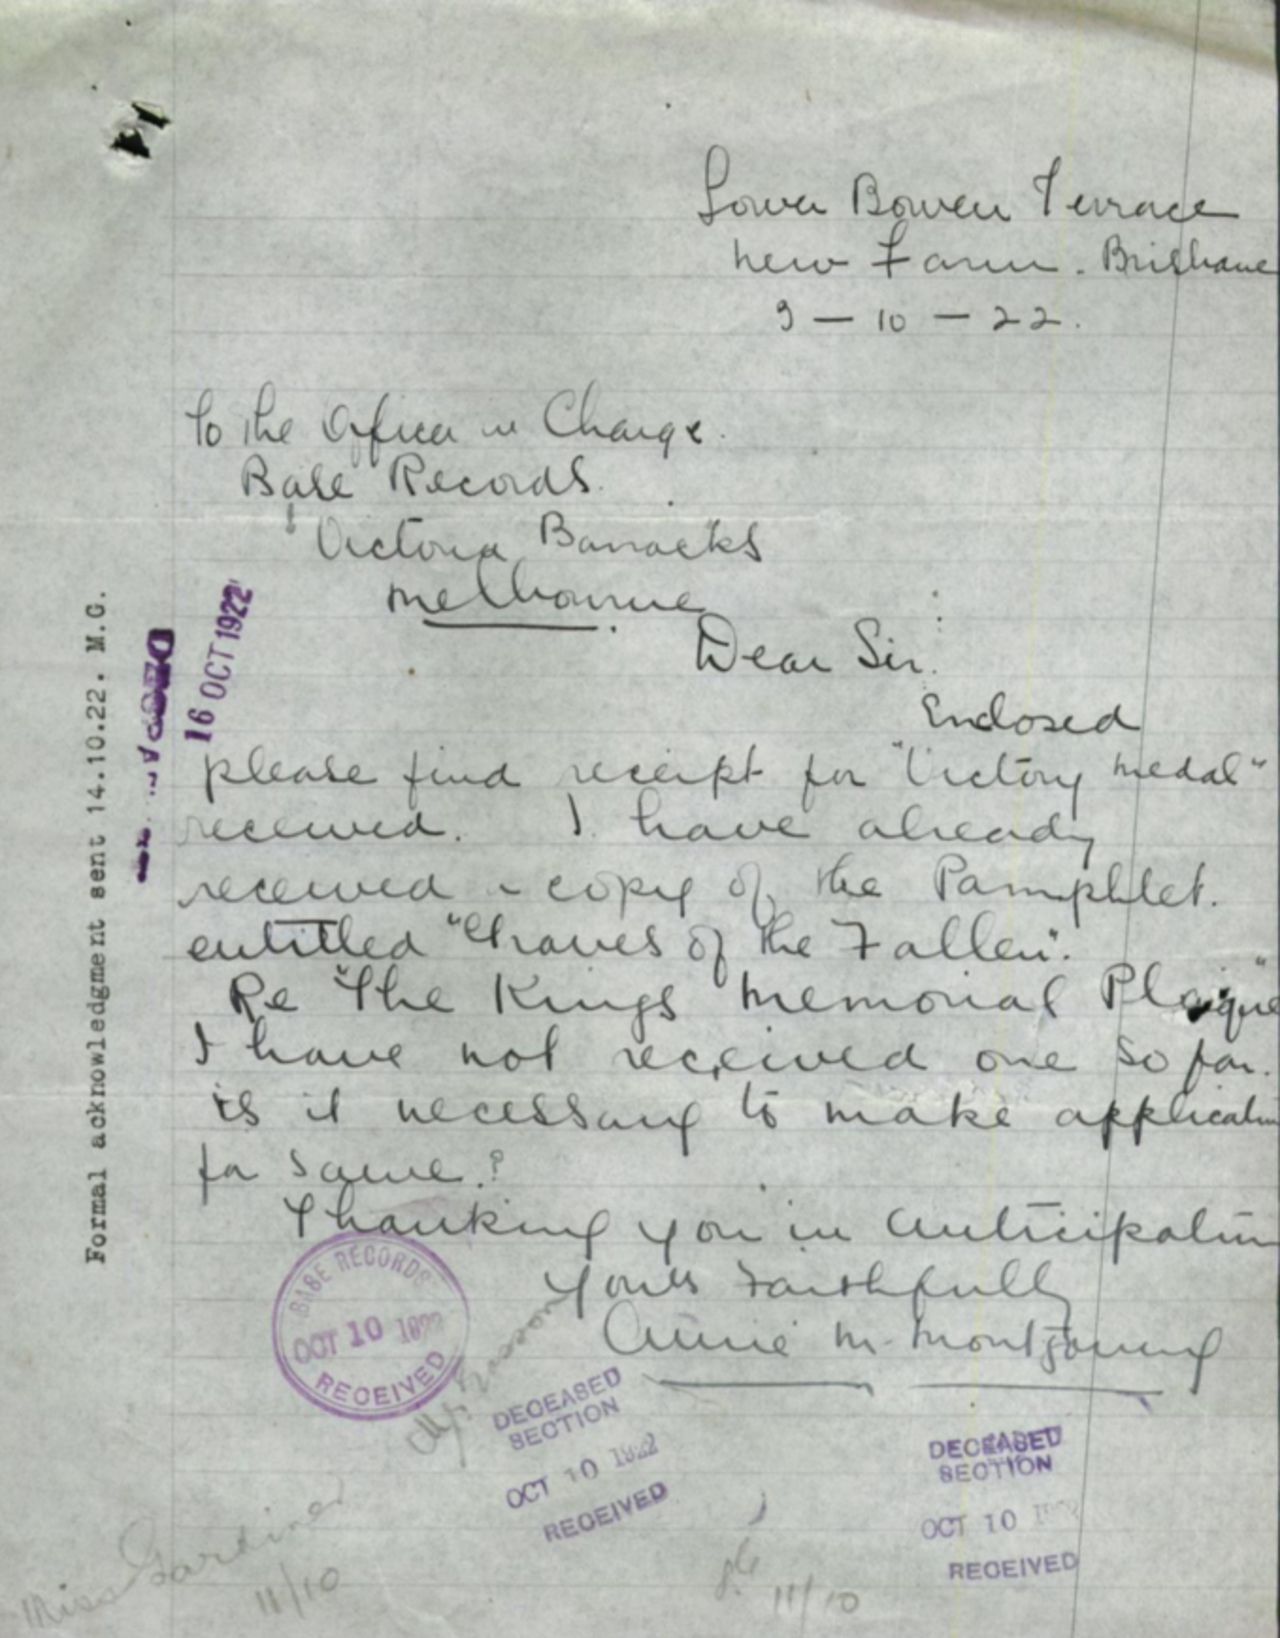 Lower Bowen Terrace
New Farm. Brisbane
9 — 10 — 22.
To the Officer in Charge.
Base Records.
Victoria Barracks
Melbourne
Dear Sir.
Enclosed
please find receipt for "Victory Medal"
received. I have already
received a copy of the Pamphlet.
entitled "Graves of the Fallen".
Re "The Kings Memorial Plaque"
I have not received one so far.
is it necessary to make application
for same.?
Thanking you in anticipation
Yours Faithfully
Annie M. Montgomery
Formal acknowledgment sent 14.10.22. M.G.
16 OCT 1922
BASE RECORDS
OCT 10 1922
RECEIVED
DECEASED
SECTION
OCT 10 1922
RECEIVED
DECEASED
SECTION
OCT 10
RECEIVED
Miss Gardiner
11/10
11/10